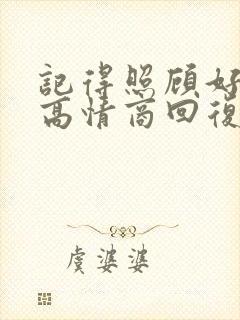 記得照顾好
高情商回復
虞婆婆